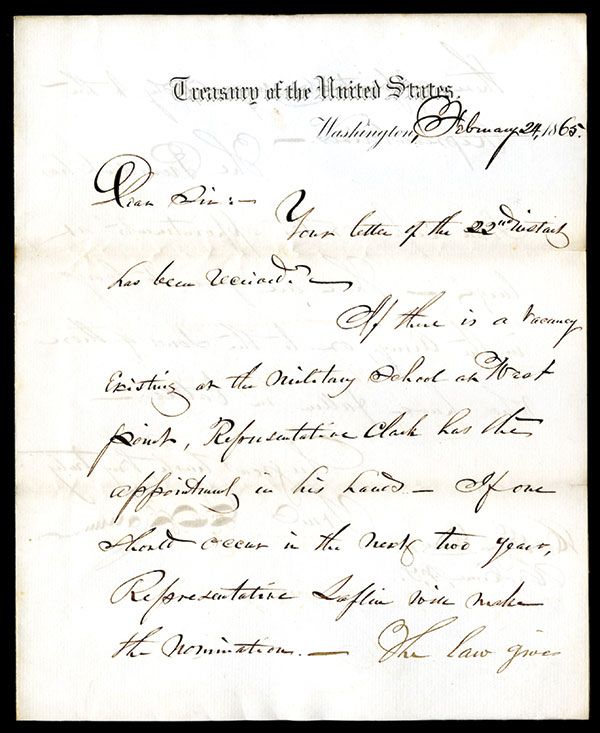 Treasury of the United States.
Washington, February 24, 1865.
Dear Sir:—
Your letter of the 22nd instant
has been received.—
If there is a vacancy
existing at the military school at West
point, Representative Clark has the
appointment in his hands — If one
should occur in the next two years,
Representative Laflin will make
the nomination. — The law gives